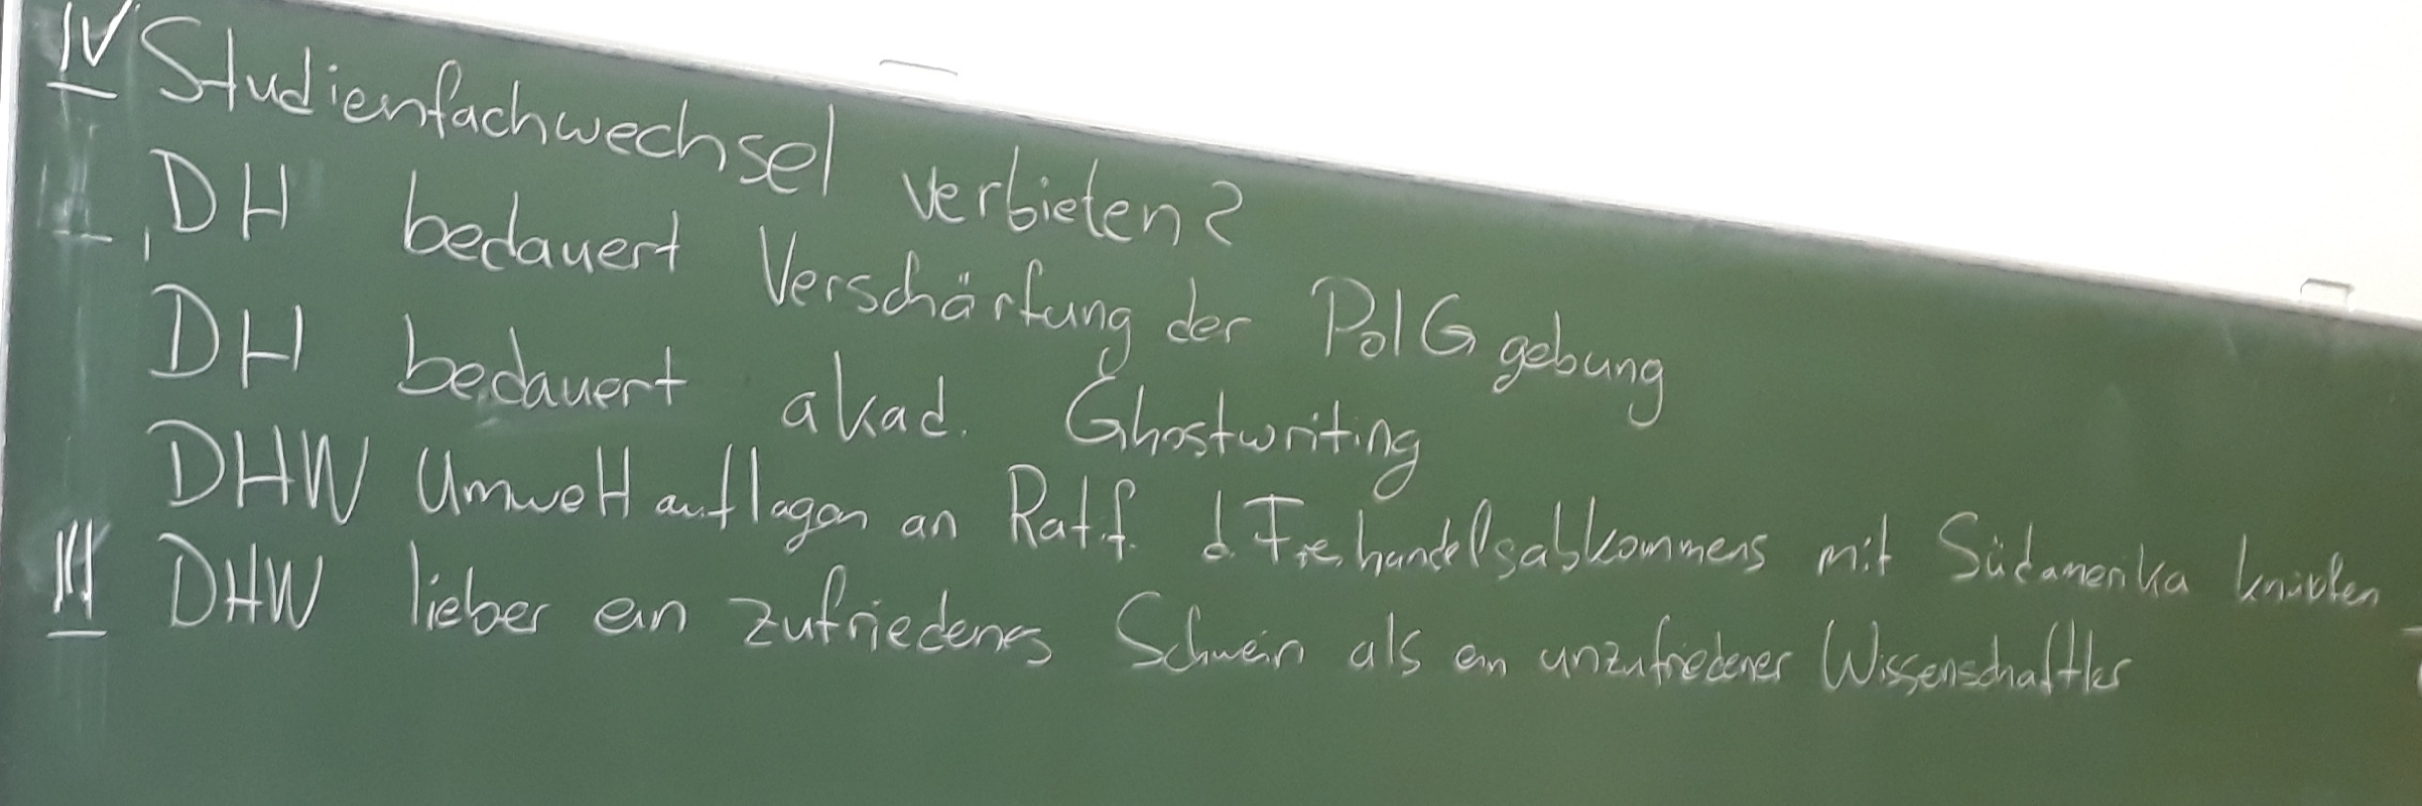 IV Studienfachwechsel verbieten?
DH bedauert Verschärfung der PolG gebung
DH bedauert akad. Ghostwriting
DHW Umweltauflagen an Ratif. d. Freihandelsabkommens mit Südamerika knüpfen
III DHW lieber ein zufriedenes Schwein als ein unzufriedener Wissenschaftler